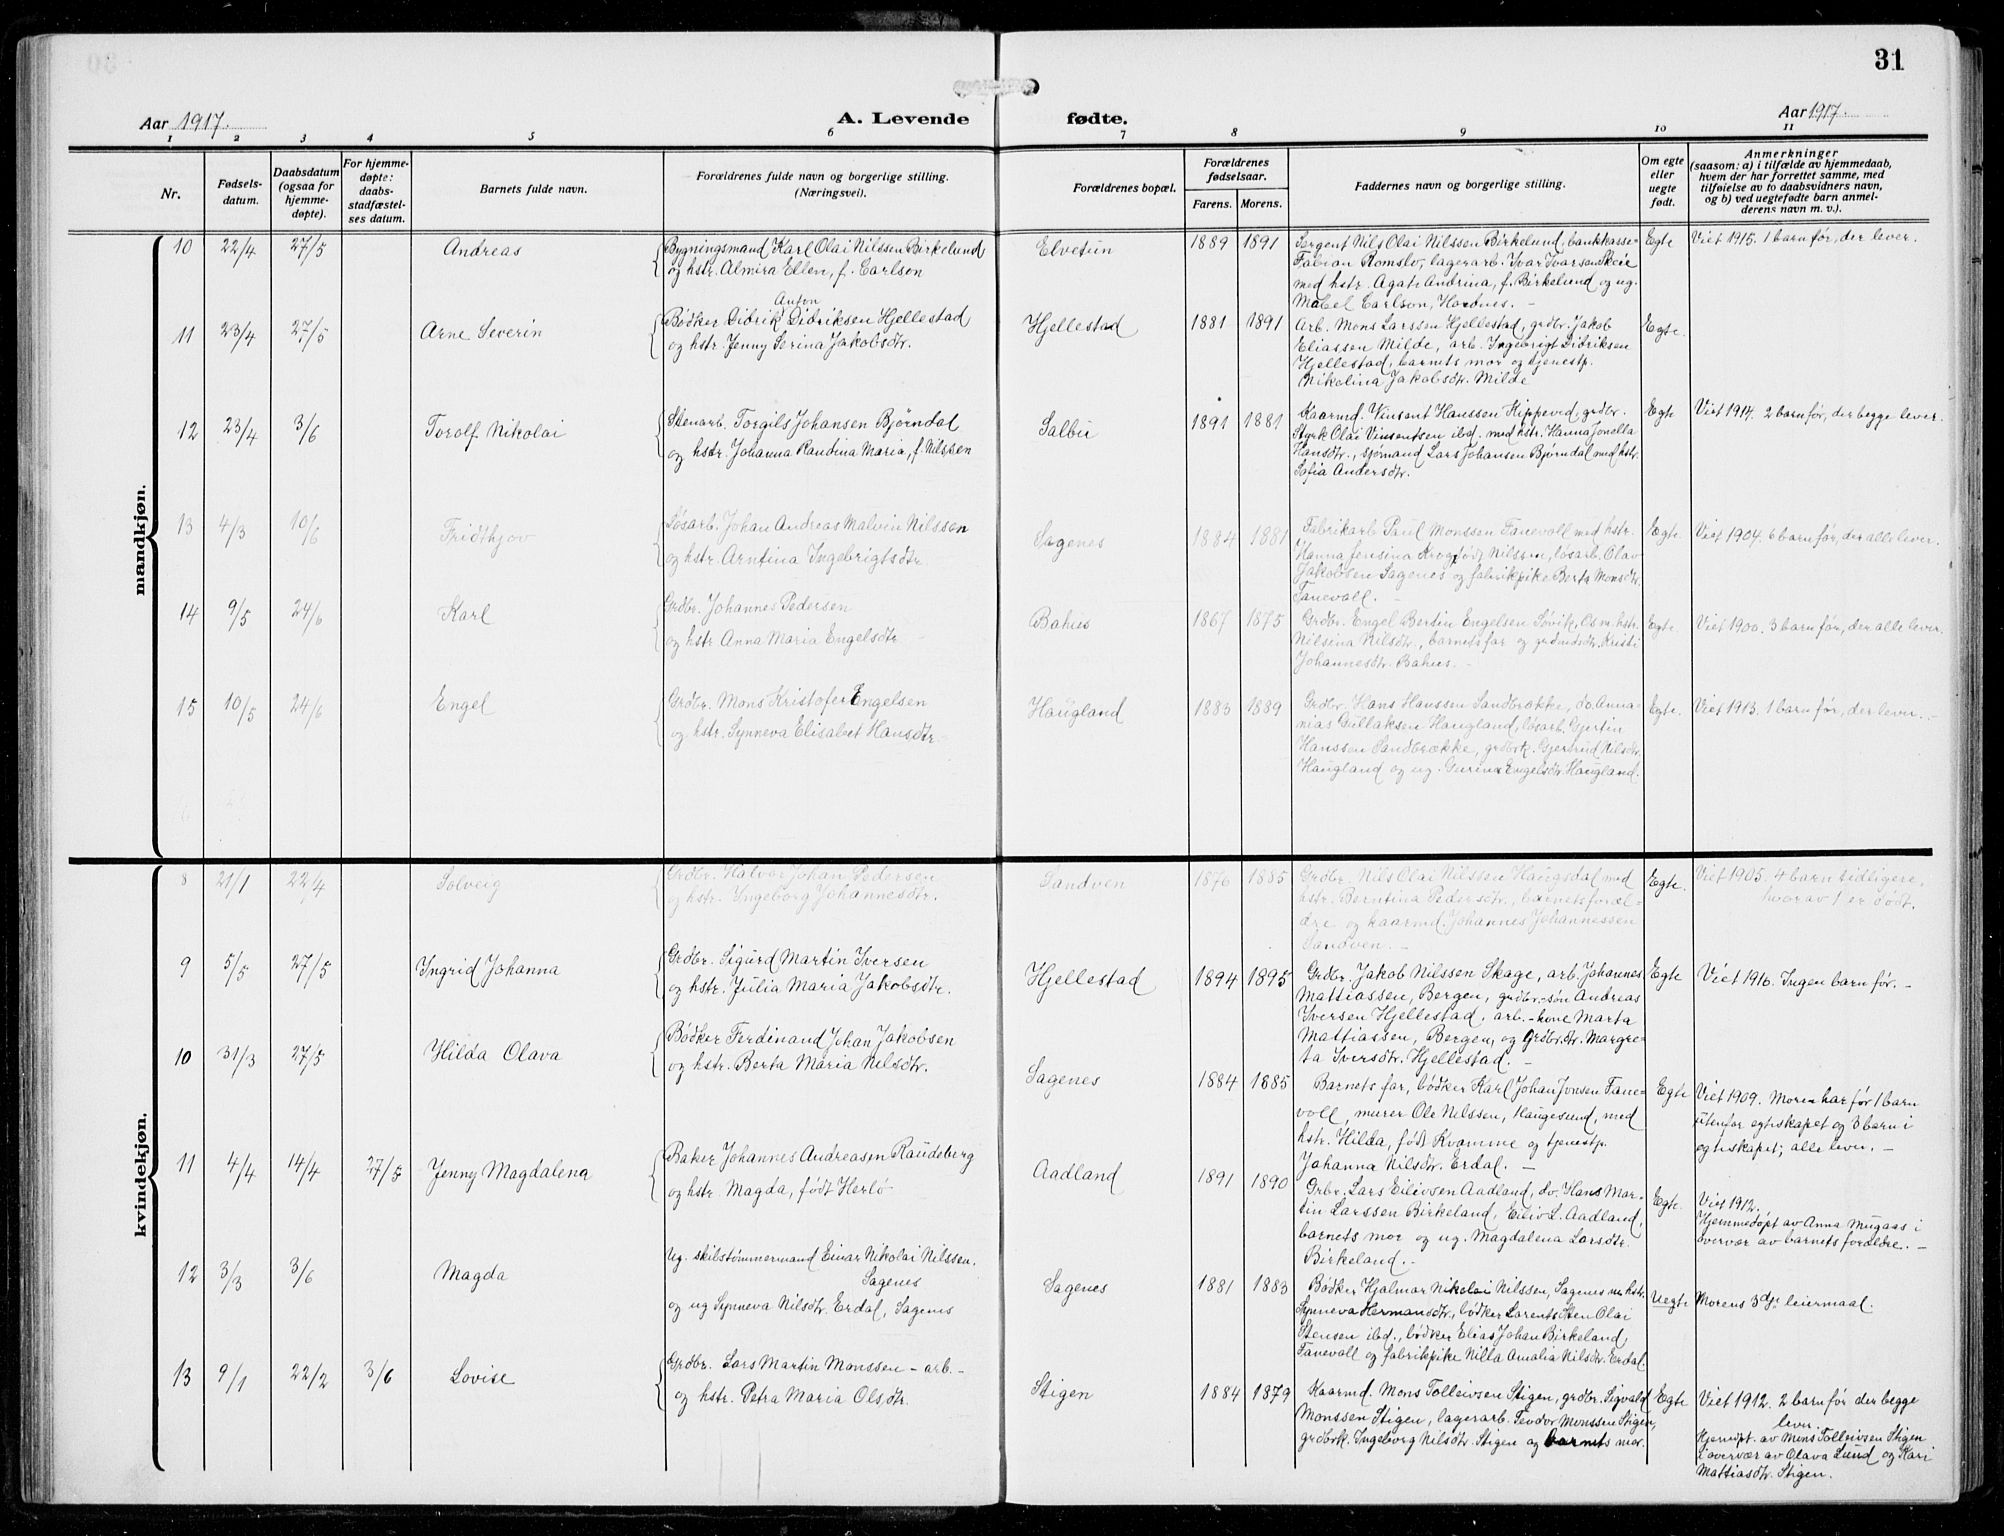 31
Aar 1917.
A. Levende fødte.
Aar 1917.
1 2 3 4 5 6 7 8 9 10 11
Nr.
Fødsels-
datum.
Daabsdatum
(ogsaa for
hjemme-
døpte).
For hjemme-
døpte:
daabs-
stadfæstel-
ses datum.
Barnets fulde navn.
Forældrenes fulde navn og borgerlige stilling.
(Næringsvei).
Forældrenes bopæl.
Forældrenes
fødselsaar.
Farens. Morens.
Faddernes navn og borgerlige stilling.
Om egte
eller
uegte
født.
Anmerkninger
(saasom: a) i tilfælde av hjemmedaab,
hvem der har forrettet samme, med
tilføielse av to daabsvidners navn,
og b) ved uegtefødte barn anmel-
derens navn m. v.).
mandkjøn.
10 22/4 27/5 Andreas
Bygningsmand Karl Olai Nilssen Birkelund
og hstr. Almira Ellen, f. Carlson
Elvetun 1889 1891
Sergent Nils Olai Nilssen Birkelund, bankkasse-
Fabian Romslo, lagerarb. Ivar Ivarsen Skeie
med hstr. Agate Andrina, f. Birkelund og ug.
Mabel Carlson, Hordnes. -
Egte
Viet 1915. 1 barn før, der lever.
11 23/4 27/5 Arne Severin
Anton
Bødker Didrik Didriksen Hjellestad
og hstr. Jenny Serina Jakobsdtr.
Hjellestad 1881 1891
Arb. Mons Larssen Hjellestad, grdbr. Jakob
Eliassen Milde, arb. Ingebrigt Didriksen
Hjellestad, barnets mor og tjenestp.
Nikolina Jakobsdtr. Milde
Egte.
12 23/4 3/6 Torolf Nikolai
Stenarb. Torgils Johansen Bjørndal
og hstr. Johanna Randina Maria, f. Nilssen
Salbu 1891 1881
Kaarmd. Vinsent Hanssen Kippevid, grdbr.
Styrk Olai Vinsentsen ibd. med hstr. Hanna Jonella
Hansdtr., sjømand Lars Johansen Bjørndal med hstr.
Sofia Andersdtr.
Egte
Viet 1914. 2 barn før, der begge lever.
13 4/3 10/6 Fridthjov
Løsarb. Johan Andreas Malvin Nilssen
og hstr. Arntina Ingebrigtsdtr.
Sagenes 1884 1881
Fabrikarb Paul Monssen Fanevoll med hstr.
Hanna Jensina Krog født Nilssen, løsarb. Olav
Jakobsen Sagenes og fabrikpike Berta Monsdtr.
Fanevoll. -
Egte.
Viet 1904. 6 barn før, der alle lever.
14 9/5 24/6 Karl
Grdbr. Johannes Pedersen
og hstr Anna Maria Engelsdtr
Bahus 1867 1875
Grdbr. Engel Bertin Engelsen Søvik, Os m. hstr.
Nilsina Nilsdtr., barnets far og grdmdsdtr. Kristi
Johannesdtr. Bahus. -
Egte.
Viet 1900. 3 barn før, der alle lever.
15 10/5 24/6 Engel
Grdbr. Mons Kristofer Engelsen
og hstr. Synneva Elisabet Hansdtr.
Haugland 1883 1889
Grdbr. Hans Hanssen Sandbrække, do. Anna-
nias Gullaksen Haugland, løsarb. Gjertin
Hanssen Sandbrække, grdbrk. Gjertrud Nilsdtr.
Haugland og ug. Gurina Engelsdtr. Haugland.
Egte.
Viet 1913. 1 barn før, der lever. -
kvindekjøn.
8 21/1 22/4 Solveig
Grdbr. Halvor Johan Pedersen
og hstr. Ingeborg Johannesdtr.
Sandven 1876 1885
Grdbr. Nils Olai Nilssen Haugsdal med
hstr. Berntina Pedersdtr., barnets foræl-
dre og kaarmd. Johannes Johannessen
Sandven. -
Egte.
Viet 1905. 4 barn tidligere,
hvorav 1 er død.
9 5/5 27/5 Ingrid Johanna
Grdbr. Sigurd Martin Iversen
og hstr. Julia Maria Jakobsdtr.
Hjellestad 1894 1895
Grdbr. Jakob Nilssen Skage, arb. Johannes
Mattiassen, Bergen, grdbr.-søn Andreas
Iversen Hjellestad, arb.-kone Marta
Mattiassen, Bergen, og Grdbr.dtr. Margre-
ta Iversdtr. Hjellestad. -
Egte
Viet 1916. Ingen barn før. -
10 31/3 27/5 Hilda Olava
Bødker Ferdinand Johan Jakobsen
og hstr. Berta Maria Nilsdtr.
Sagenes 1884 1885
Barnets far, bødker Karl Johan Jonsen Fane-
voll, murer Ole Nilssen, Haugesund, med
hstr. Hilda, født Kvamme og tjenestp.
Johanna Nilsdtr. Erdal. -
Egte
Viet 1909. Moren har før 1 barn
utenfor egteskapet og 3 barn i
egteskapet; alle lever. -
11 4/4 14/4 27/5 Jenny Magdalena
Baker Johannes Andreasen Raudeberg
og hstr. Magda, født Herlø
Aadland 1891 1890
Grbr. Lars Eilivsen Aadland, do. Hans Mar-
tin Larssen Birkeland, Eiliv L. Aadland,
barnets mor og ug. Magdalena Larsdtr.
Birkeland. -
Egte.
Viet 1912.
Hjemmedøpt av Anna Mugaas i
overvær av barnets forældre. -
12 3/3 3/6 Magda
Ug. skibstømmermand Einar Nikolai Nilssen.
Sagenes
og ug Synneva Nilsdtr. Erdal, Sagenes
Sagenes 1881 1883
Bødker Hjalmar Nikolai Nilssen, Sagenes m hstr.
Synneva Hermansdtr., bødker Lorents Sten Olai
Stensen ibd., bødker Elias Johan Birkeland,
Fanevoll og fabrikpike Nilla Amalia Nilsdtr. Erdal.
Uegte
Morens 3dje leiermaal.
13 9/1 22/2 3/6 Lovise
Grdbr. Lars Martin Monssen - arb. -
og hstr. Petra Maria Olsdtr.
Stigen 1884 1879
Kaarmd. Mons Tolleivsen Stigen, grdbr. Sigvald
Monssen Stigen, lagerarb. Teodor Monssen Stigen,
grdbrk. Ingeborg Nilsdtr. Stigen og barnets mor.
Egte
Viet 1912. 2 barn før der begge
lever.
Hjemdpt. av Mons Tolleivsen Stigen
i overvær av Olava Lund og Kari
Mattiasdtr. Stigen.